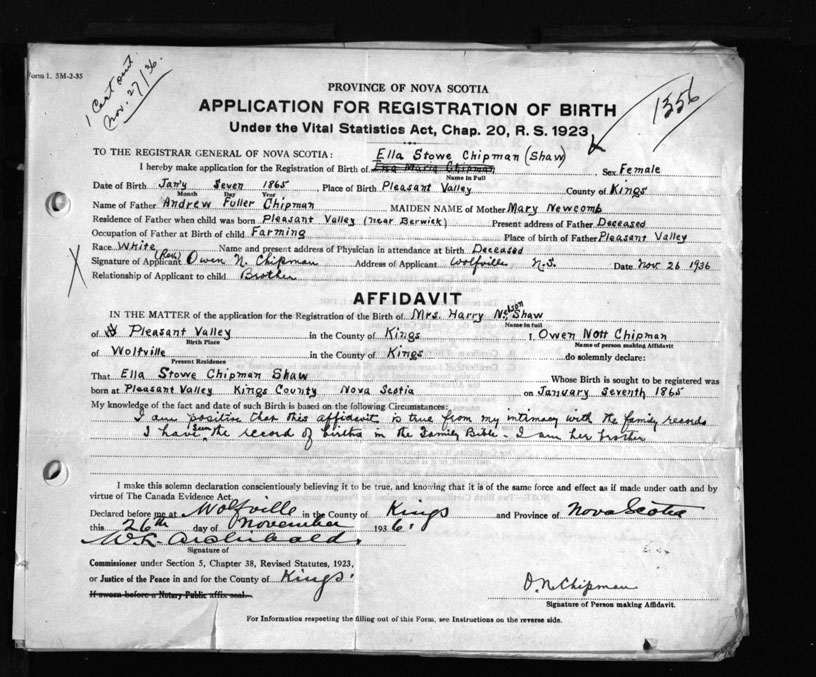 Form 1. 5M-2-35
1 Cert out.
Nov. 27/36.
1356
PROVINCE OF NOVA SCOTIA
APPLICATION FOR REGISTRATION OF BIRTH
Under the Vital Statistics Act, Chap. 20, R. S. 1923
TO THE REGISTRAR GENERAL OF NOVA SCOTIA: Ella Stowe Chipman (Shaw)
I hereby make application for the Registration of Birth of Ena Maria Chipman, Sex Female
Name in Full
Date of Birth Jan'y Seven 1865, Place of Birth Pleasant Valley County of Kings
Month Day Year
Name of Father Andrew Fuller Chipman MAIDEN NAME of Mother Mary Newcomb
Residence of Father when child was born Pleasant Valley (near Berwick) Present address of Father Deceased
Occupation of Father at Birth of child Farming Place of birth of Father Pleasant Valley
Race White Name and present address of Physician in attendance at birth Deceased
Signature of Applicant (Rev) Owen N. Chipman Address of Applicant Wolfville N.S. Date Nov 26 1936
Relationship of Applicant to child Brother
X
AFFIDAVIT
IN THE MATTER of the application for the Registration of the Birth of Mrs. Harry Nelson Shaw
Name in full
of Pleasant Valley in the County of Kings I, Owen Nott Chipman
Birth Place Name of person making Affidavit
of Wolfville in the County of Kings do solemnly declare:
Present Residence
That Ella Stowe Chipman Shaw Whose Birth is sought to be registered was
born at Pleasant Valley Kings County Nova Scotia, on January Seventh 1865
My knowledge of the fact and date of such Birth is based on the following Circumstances:
I am positive that this affidavit is true from my intimacy with the family records
I have seen the record of births in the Family Bible - I am her brother
I make this solemn declaration conscientiously believing it to be true, and knowing that it is of the same force and effect as if made under oath and by
virtue of The Canada Evidence Act.
Declared before me at Wolfville in the County of Kings and Province of Nova Scotia
this 26th day of November 1936.
W.K. Archibald.
Signature of
Commissioner under Section 5, Chapter 38, Revised Statutes, 1923,
or Justice of the Peace in and for the County of Kings.
If sworn before a Notary Public affix seal.
O.N. Chipman
Signature of Person making Affidavit.
For Information respecting the filling out of this Form, see Instructions on the reverse side.